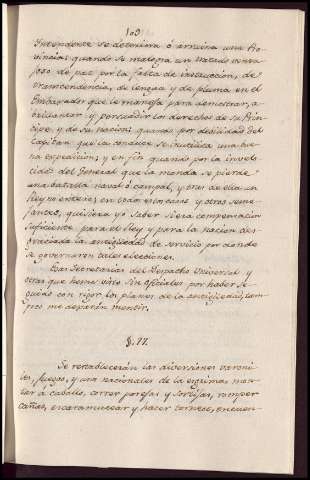 103.
Intendente se deteriora ó arruina una Pro-
vincia; quando se malogra un tratado venta-
joso de paz por la falta de instruccion, de
transcendencia, de lengua y de pluma en el
Embaxador que le maneja para demostrar, a
brillantar y persuadir los derechos de su Prin-
cipe y de su nacion; quando por debilidad del
Capitan que la conduce se inutiliza una bue
na expedicion; y en fin quando por la inepti-
tud del General que la manda se pierde
una batalla naval ó campal, y tras de ella un
Reyno entero; en todos estos casos y otros seme-
jantes, quisiera yo saber si era compensacion
suficiente para el Rey y para la nacion des-
graciada la antigüedad de servicio por donde
se governaron tales elecciones.
Las Secretarías del Despacho Universal y
otras que hemos visto sin oficiales por haber se
guido con rigor los planes de la antigüedad, tam-
poco me dejarán mentir.
§. 77.
Se restablecerán las diversiones varoni-
les, juegos, y usos nacionales de la esgrima, mon-
tar á caballo, correr parejas y sortijas, romper
cañas, escaramucear y hacer torneos, encuen-